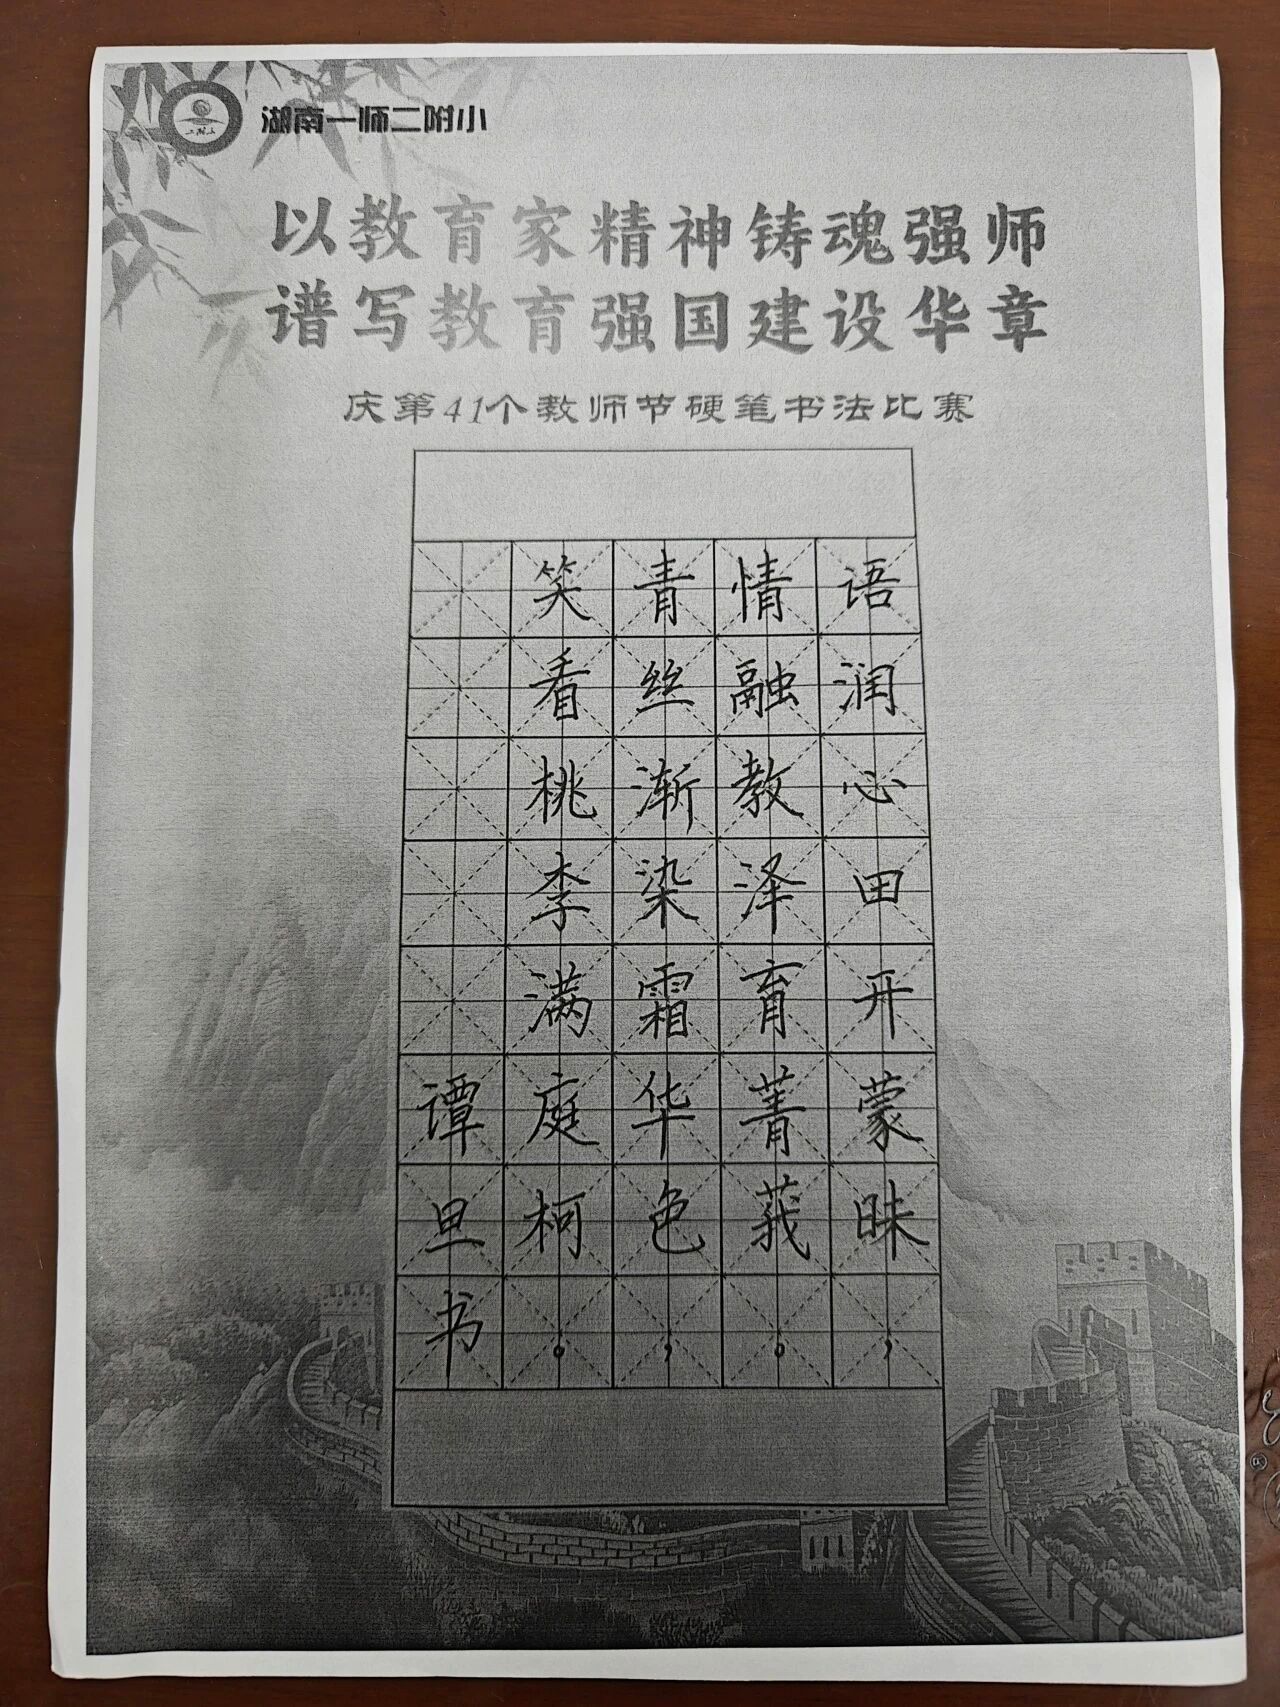 湖南一师二附小
以教育家精神铸魂强师
谱写教育强国建设华章
庆第41个教师节硬笔书法比赛
语润心田开蒙昧，
情融教泽育菁莪。
青丝渐染霜华色，
笑看桃李满庭柯。
谭旦书